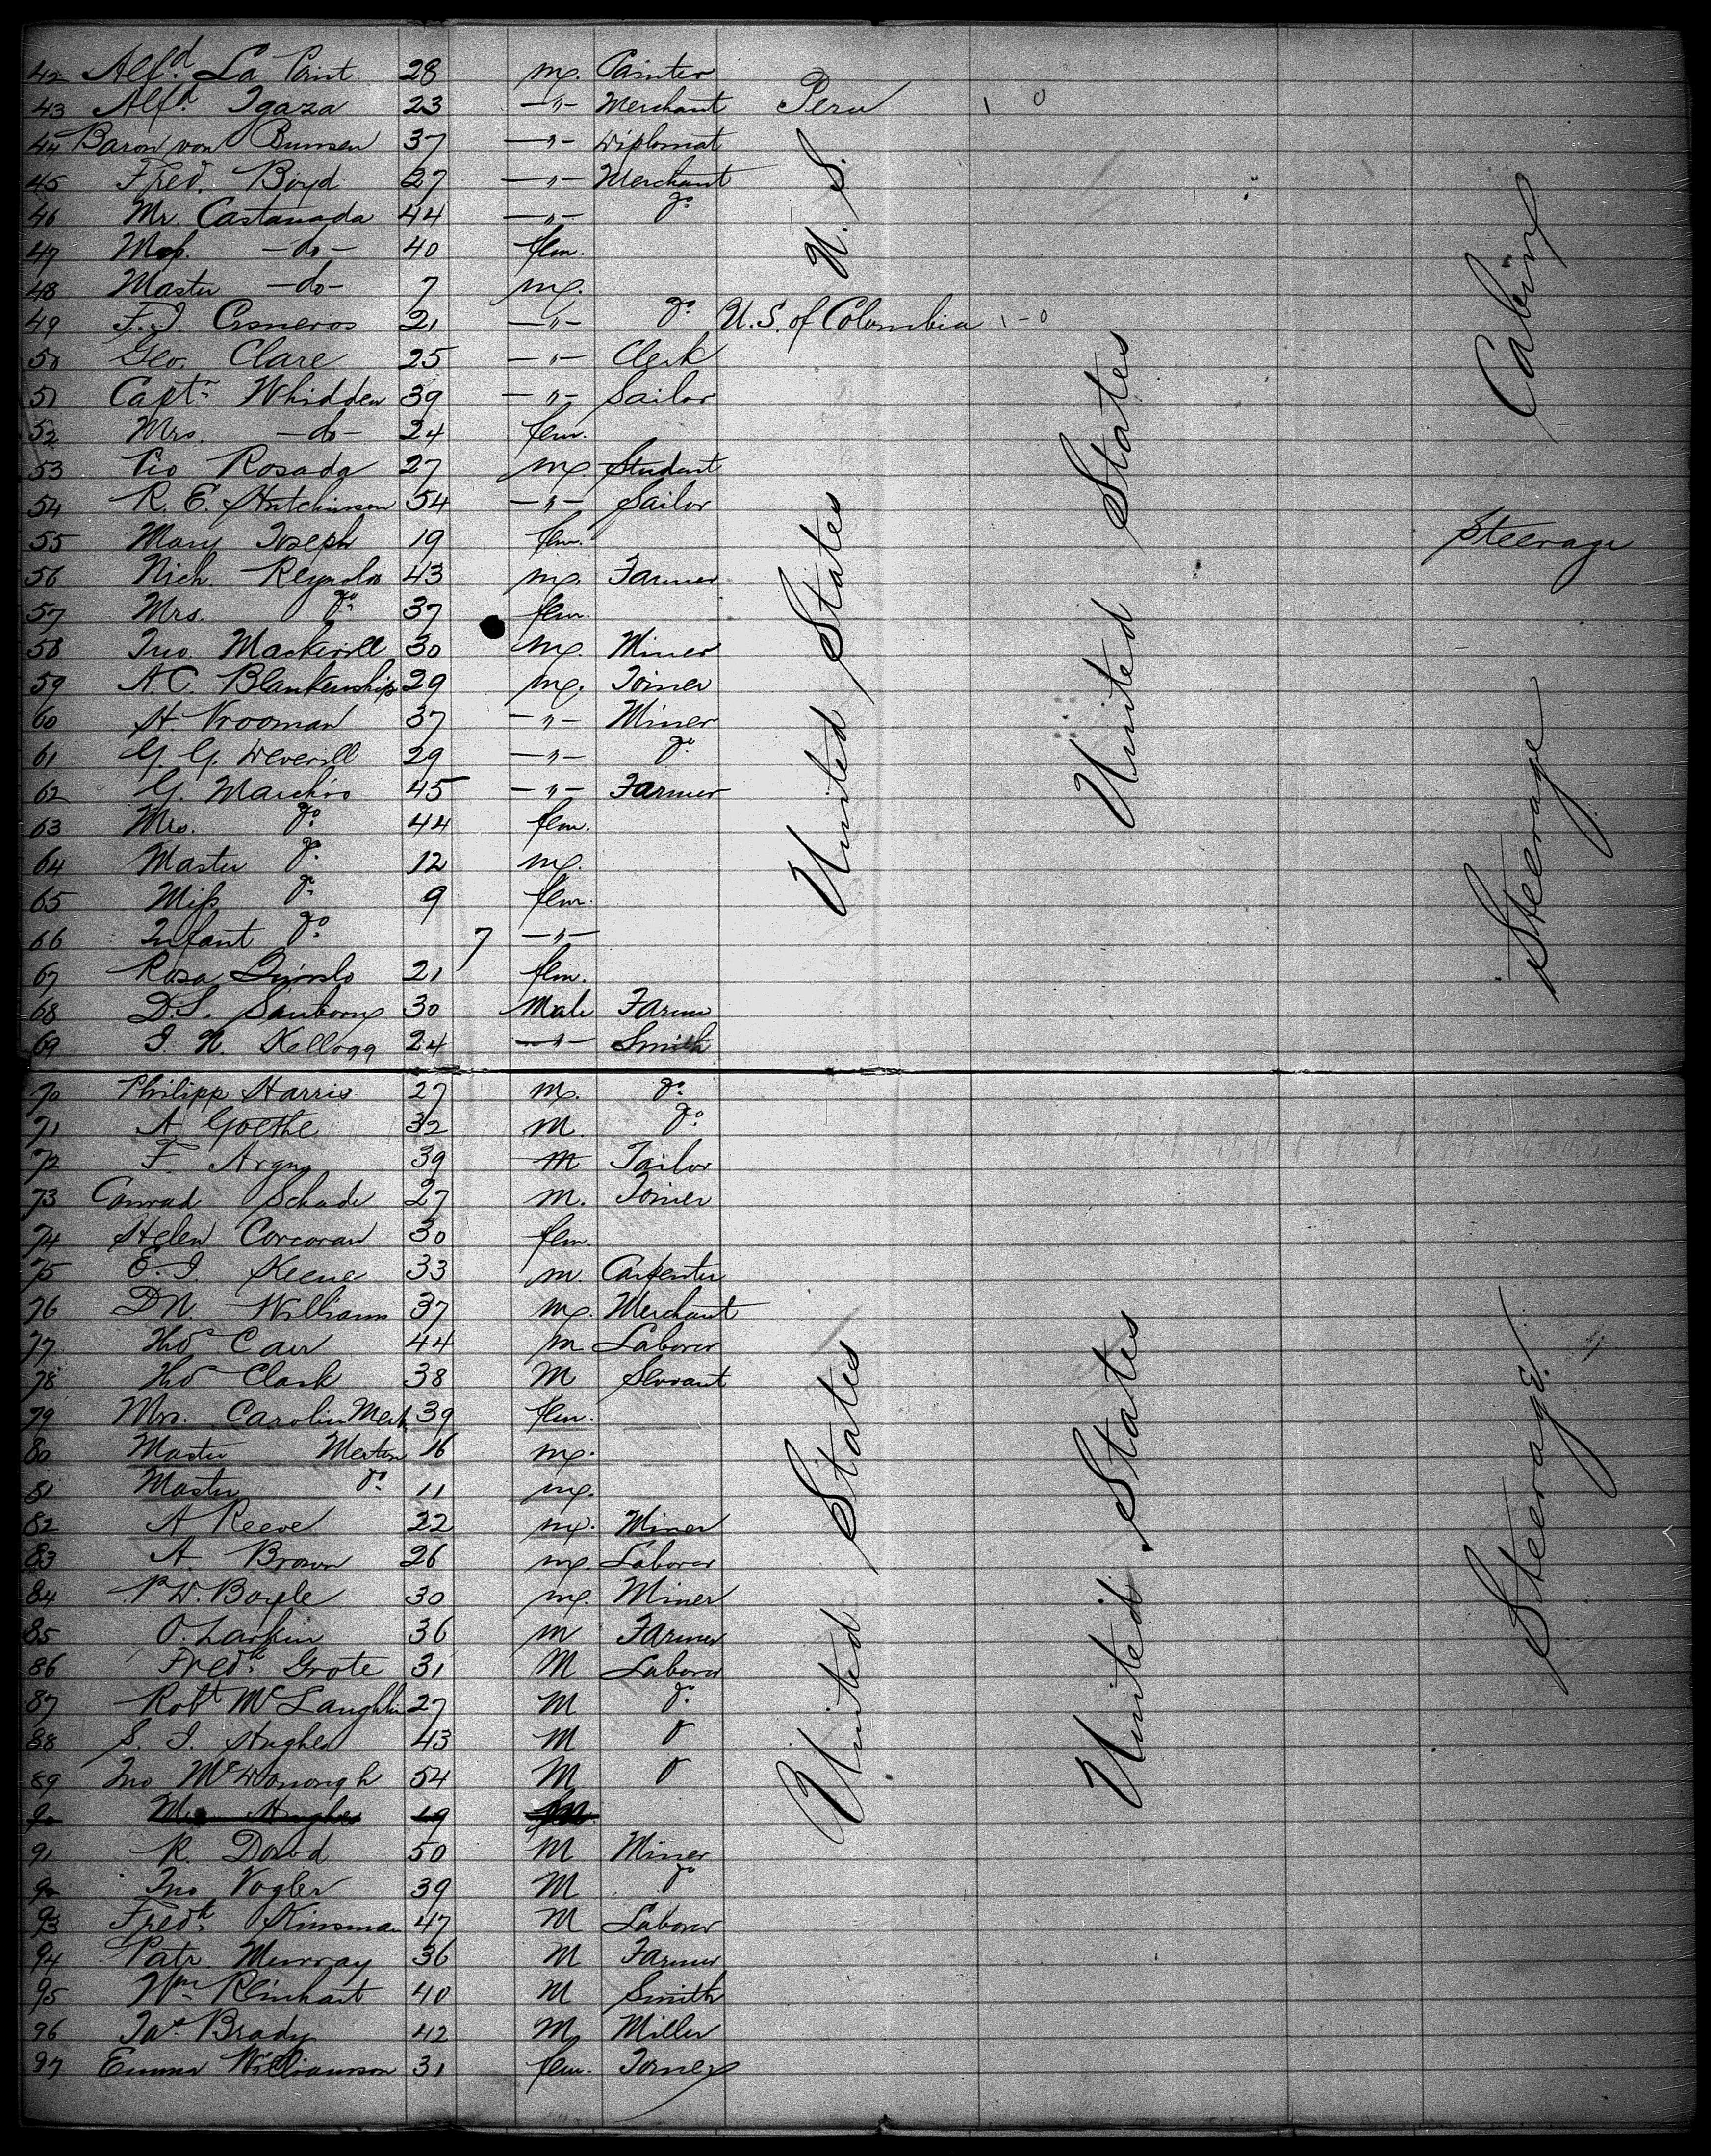 42 Alfd. La Point 28 m. Painter
43 Alfd. Igaza 23 —"— Merchant Peru 1 0
44 Baron von Bunsen 37 —"— Diplomat
45 Fred. Boyd 27 —"— Merchant
46 Mr. Castanada 44 —"— do
47 —do— 40 fem.
48 Master —do— 7 m.
49 F. J. Cisneros 21 —"— do U.S. of Colombia 1-0
50 Geo. Clare 25 —"— Clerk
51 Captn Whidden 39 —"— Sailor
52 Mrs. —do— 24 fem.
53 Pio Rosada 27 m. Student
54 R. E. Hutchinson 54 —"— Sailor
55 Mary Joseph 19 fem. Steerage
56 Nich. Reynolds 43 m. Farmer
57 Mrs. do 37 fem.
58 Jno. 30 m. Miner
59 A.C. Blankenship 29 m. Joiner
60 H. Vrooman 37 —"— Miner
61 G. G. Deverill 29 —"— do
62 G. 45 —"— Farmer
63 Mrs. do 44 fem.
64 Master do 12 m.
65 Miss do 9 fem.
66 Infant do 7 —"—
67 Rosa 21 fem.
68 D.S. Sanborn 30 Male Farmer
69 J. N. Kellogg 24 —"— Smith
70 Philipp Harris 27 m. do
71 A Goethe 32 M. do
72 F. 39 M Tailor
73 Conrad Schade 27 m. Joiner
74 Helen Corcoran 30 fem.
75 E. J. Keene 33 m. Carpenter
76 D N. Williams 37 m. Merchant
77 Tho Carr 44 m Laborer
78 Tho Clark 38 M Servant
79 Mrs. Carolin 39 fem.
80 Master 16 m.
81 Master do 11 m.
82 A Reeve 22 m. Miner
83 A Brown 26 m. Laborer
84 P W. Boyle 30 m. Miner
85 O. Larkin 36 m Farmer
86 Fredk. Grote 31 M Laborer
87 Robt McLaughlin 27 M do
88 S. J. Hughes 43 M do
89 Jno McDonough 54 M do
90 Hughes 19
91 R. Dowd 50 M Miner
92 Jno Vogler 39 M do
93 Fredk. Kinsman 47 M Laborer
94 Patr. Murray 36 M Farmer
95 Wm Rlinhart 40 M Smith
96 Jas. Brady 42 M Miller
97 Emma Williamson 31 fem. Joiner
U. S.
United States
United States
United States
United States
Cabin
Steerage
Steerage